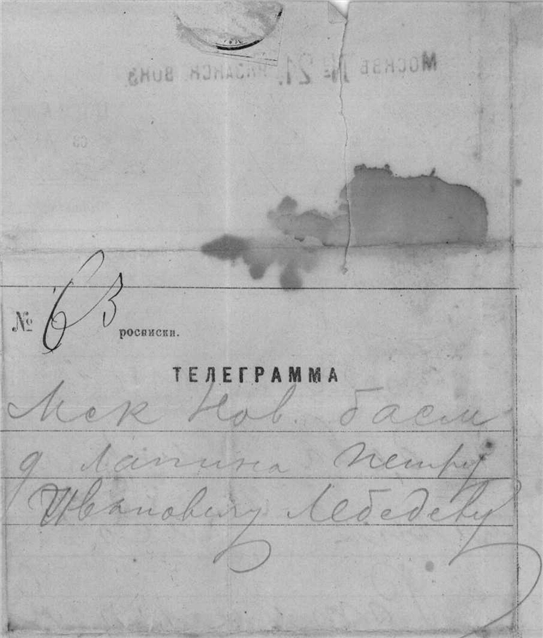 Москвъ № 21. Казанск. вокз.
№ 63
росписки.
ТЕЛЕГРАММА
Мск Нов. басм
д Лапина Петру
Ивановичу Лебедеву